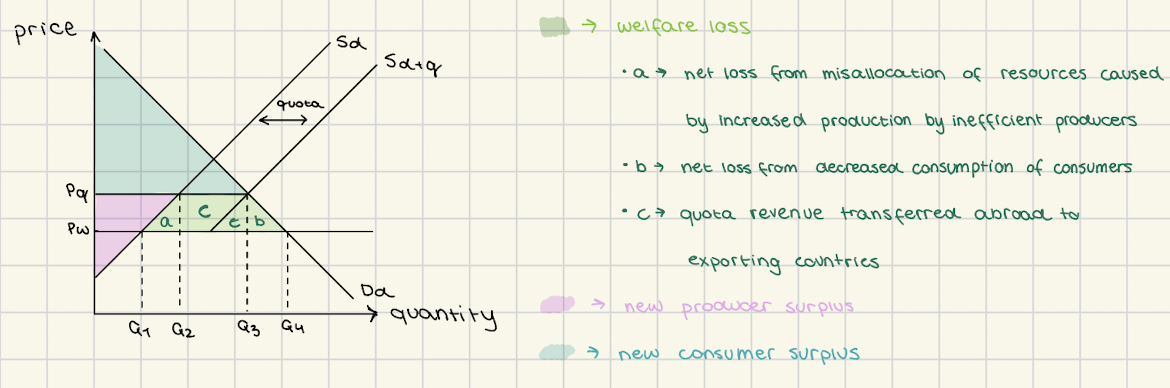 price
Sd
Sd+q
quota
Pq
Pw
a
c
c
b
Q1
Q2
Q3
Q4
Dd
quantity
→ welfare loss
• a → net loss from misallocation of resources caused
by increased production by inefficient producers
• b → net loss from decreased consumption of consumers
• c → quota revenue transferred abroad to
exporting countries
→ new producer surplus
→ new consumer surplus